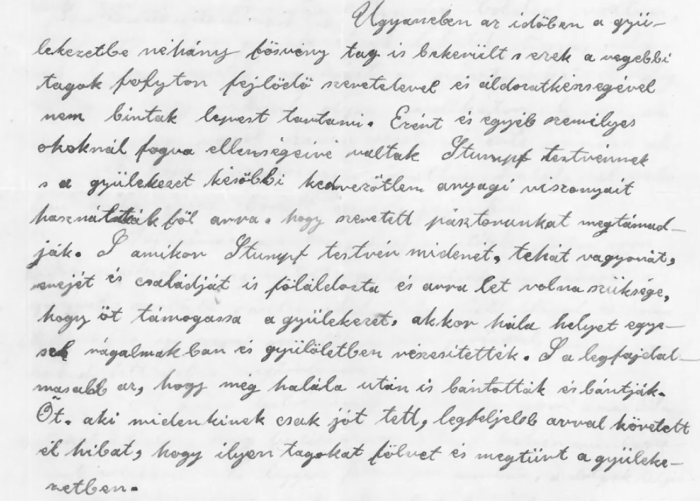 Ugyanebben az időben a gyü-
lekezetbe néhány fösvény tag is bekerült s ezek a régebbi
tagok folyton fejlődő szeretetével és áldozatkészségével
nem birtak lépést tartani. Ezért és egyéb személyes
okoknál fogva ellenségeivé váltak Stumpf testvérnek
s a gyülekezet későbbi kedvezőtlen anyagi viszonyait
használták föl arra, hogy szeretett pásztorunkat megtámad-
ják. S amikor Stumpf testvér midenét, tehát vagyonát,
erejét és családját is föláldozta és arra lett volna szüksége,
hogy őt támogassa a gyülekezet, akkor hála helyet egye-
sek rágalmakban és gyülöletben részesítették. S a legfájdal-
masabb az, hogy még halála után is bántották és bántják.
Őt, aki midenkinek csak jót tett, legfeljebb avval követett
el hibát, hogy ilyen tagokat fölvet és megtürt a gyüleke-
zetben.